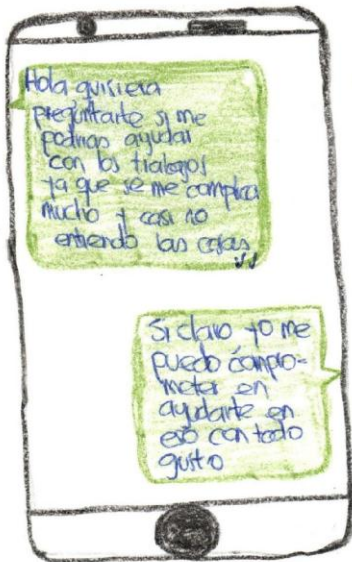 Hola quisiera
preguntarte si me
podrias ayudar
con los trabajos
ya que se me complica
mucho y casi no
entiendo las cosas
Si claro yo me
puedo compro-
meter en
ayudarte en
eso con todo
gusto